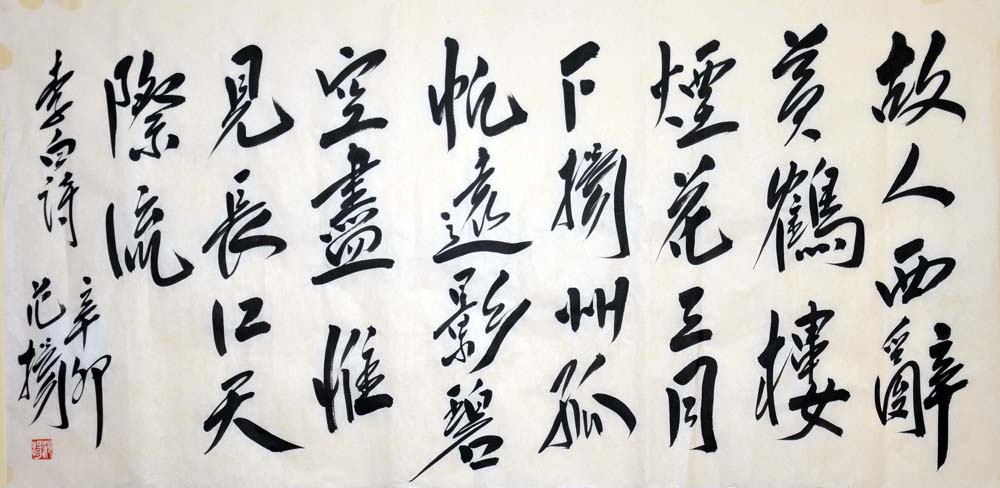 故人西辭
黃鶴樓
煙花三月
下揚州孤
帆遠影碧
空盡惟
見長江天
際流
李白詩
辛卯
范揚